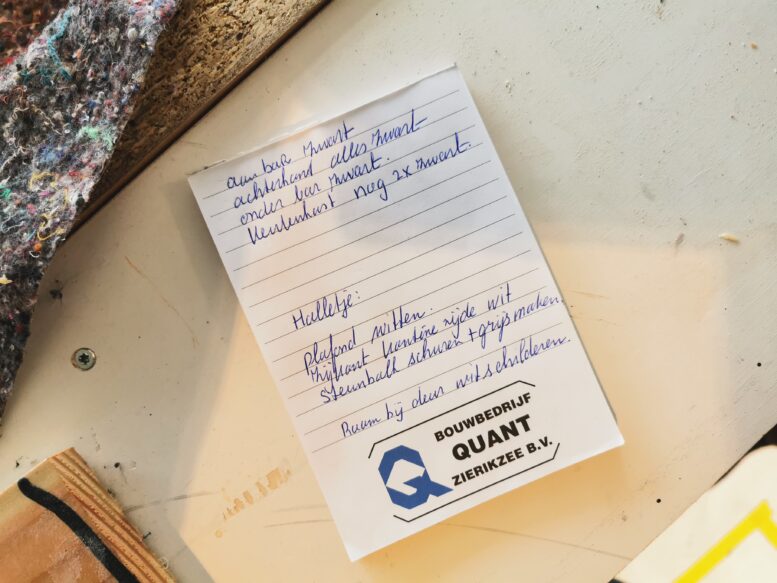 aan bar zwart
achterhand alles zwart
onder bar zwart.
Keukenkast nog 2x zwart.
Halletje:
Plafond witten.
Zijkant kantine zijde wit
Steunbalk schuren + grijs maken.
Raam bij deur wit schilderen.
BOUWBEDRIJF
QUANT
ZIERIKZEE B.V.